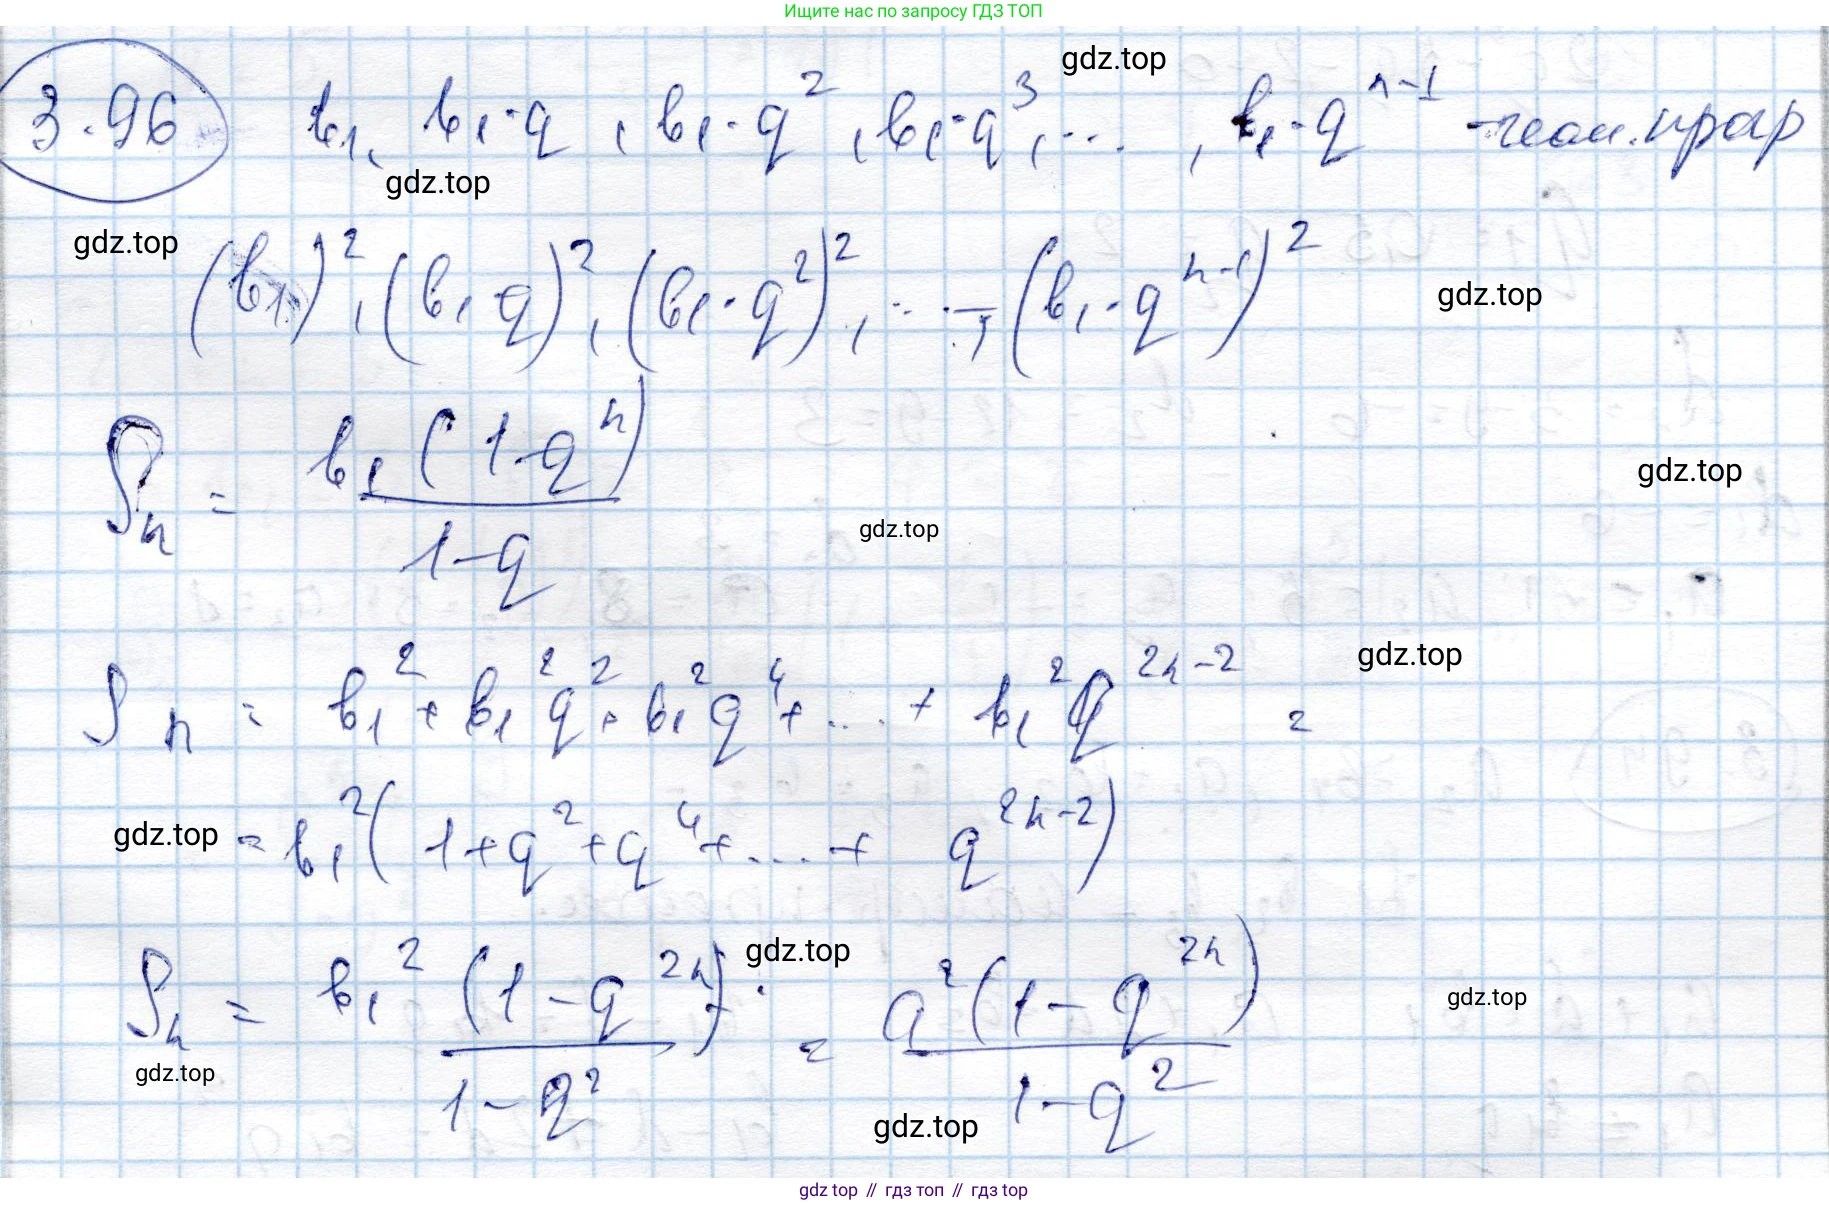 Ищите нас по запросу ГДЗ ТОП
gdz.top
3.96 b₁, b₁·q, b₁·q², b₁·q³, ... , b₁·q^(n-1) - геом. прогр
gdz.top
gdz.top
(b₁)², (b₁ q)², (b₁·q²)², ..., (b₁·q^(n-1))²
gdz.top
Sₙ = b₁(1-qⁿ) / (1-q)
gdz.top
gdz.top
Sₙ = b₁² + b₁²q² + b₁²q⁴ + ... + b₁²q^(2n-2) =
gdz.top
gdz.top
= b₁²(1+q²+q⁴+...+ q^(2n-2))
gdz.top
Sₙ = b₁²(1-q^(2n)) / (1-q²) = a²(1-q^(2n)) / (1-q²)
gdz.top
gdz.top
gdz.top
gdz top // гдз топ // gdz top